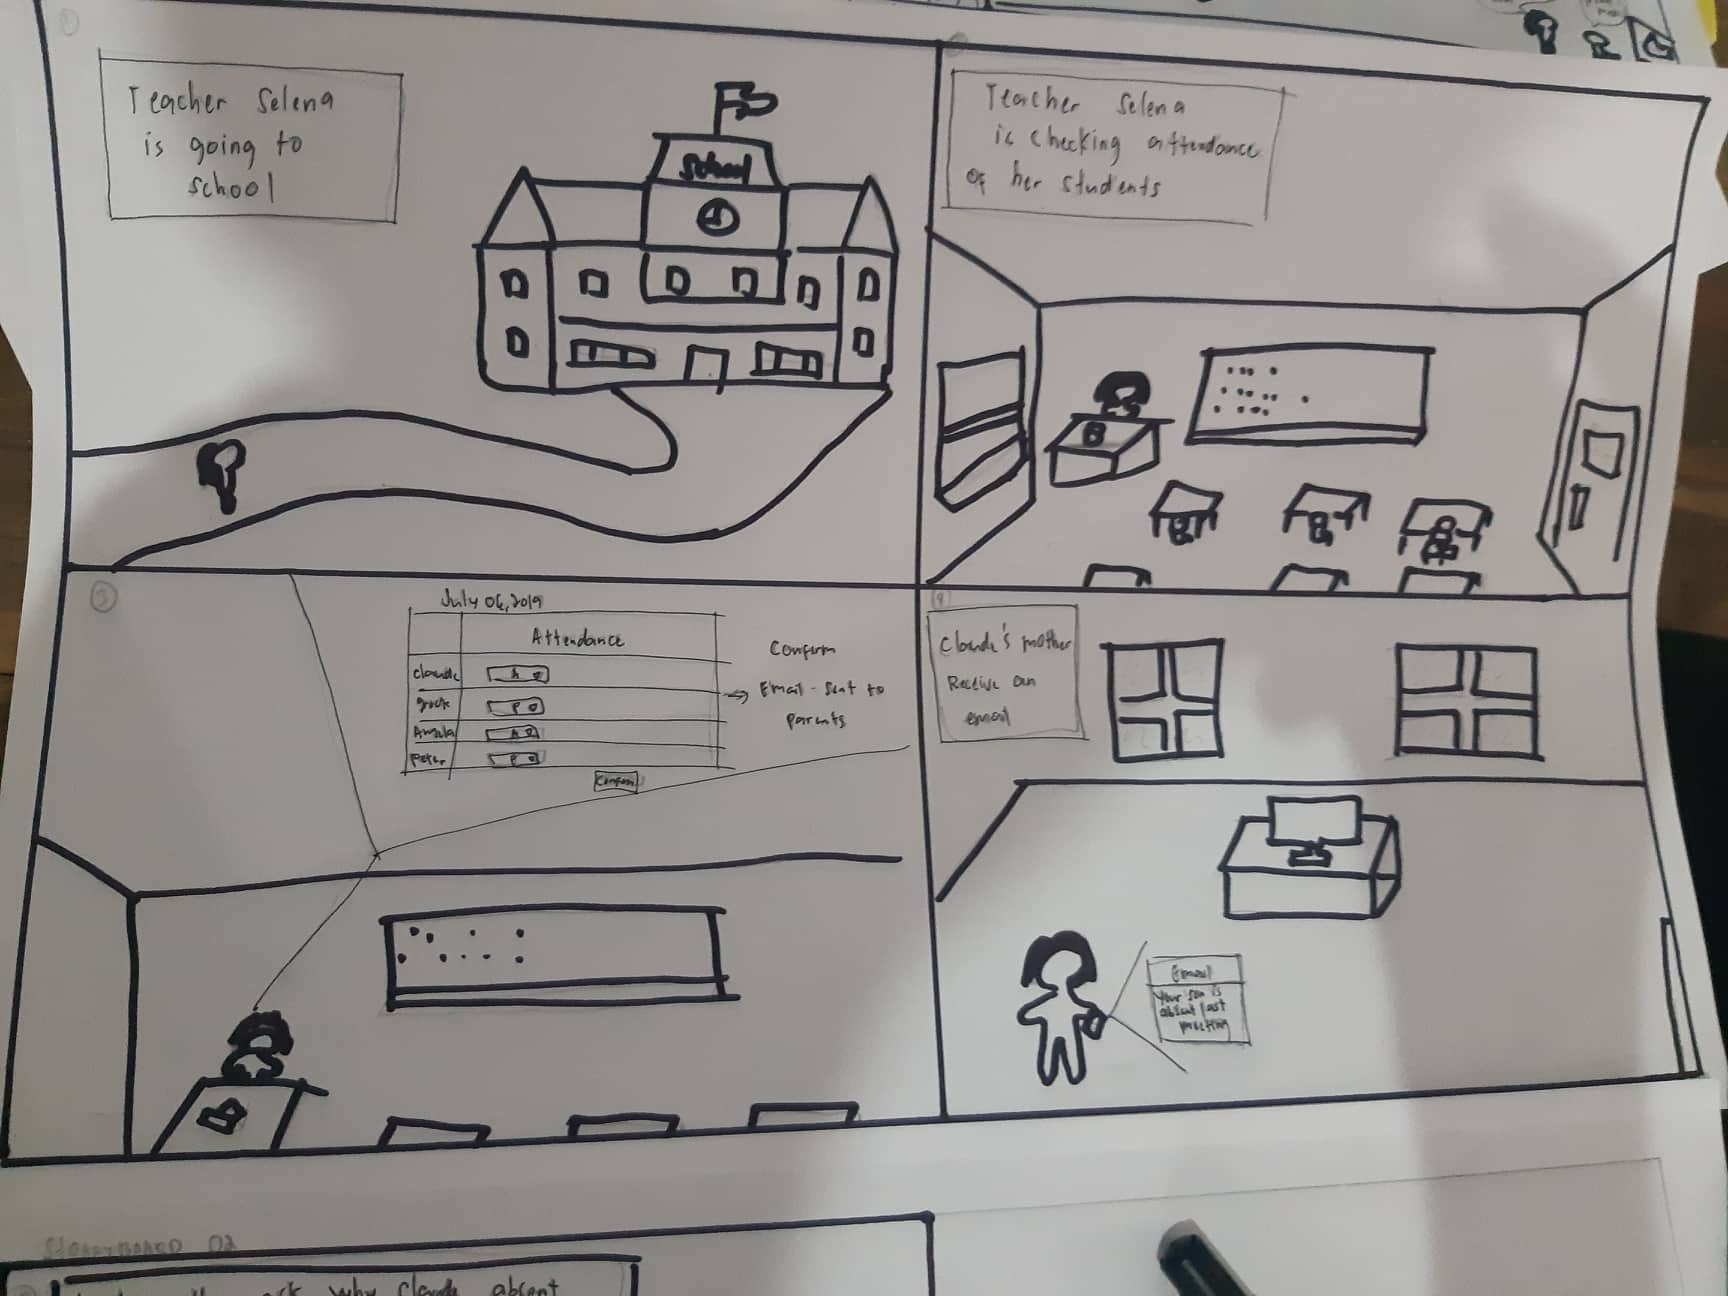 1
Teacher Selena
is going to
school
School
2
Teacher Selena
is checking attendance
of her students
3
July 06, 2019
Attendance
Claude
A
P
Angela
A
Peter
P
Confirm
Confirm
Email - Sent to
parents
4
Claude's mother
Receive an
email
Email
Your son is
absent last
meeting
STORYBOARD 02
why Claude absent